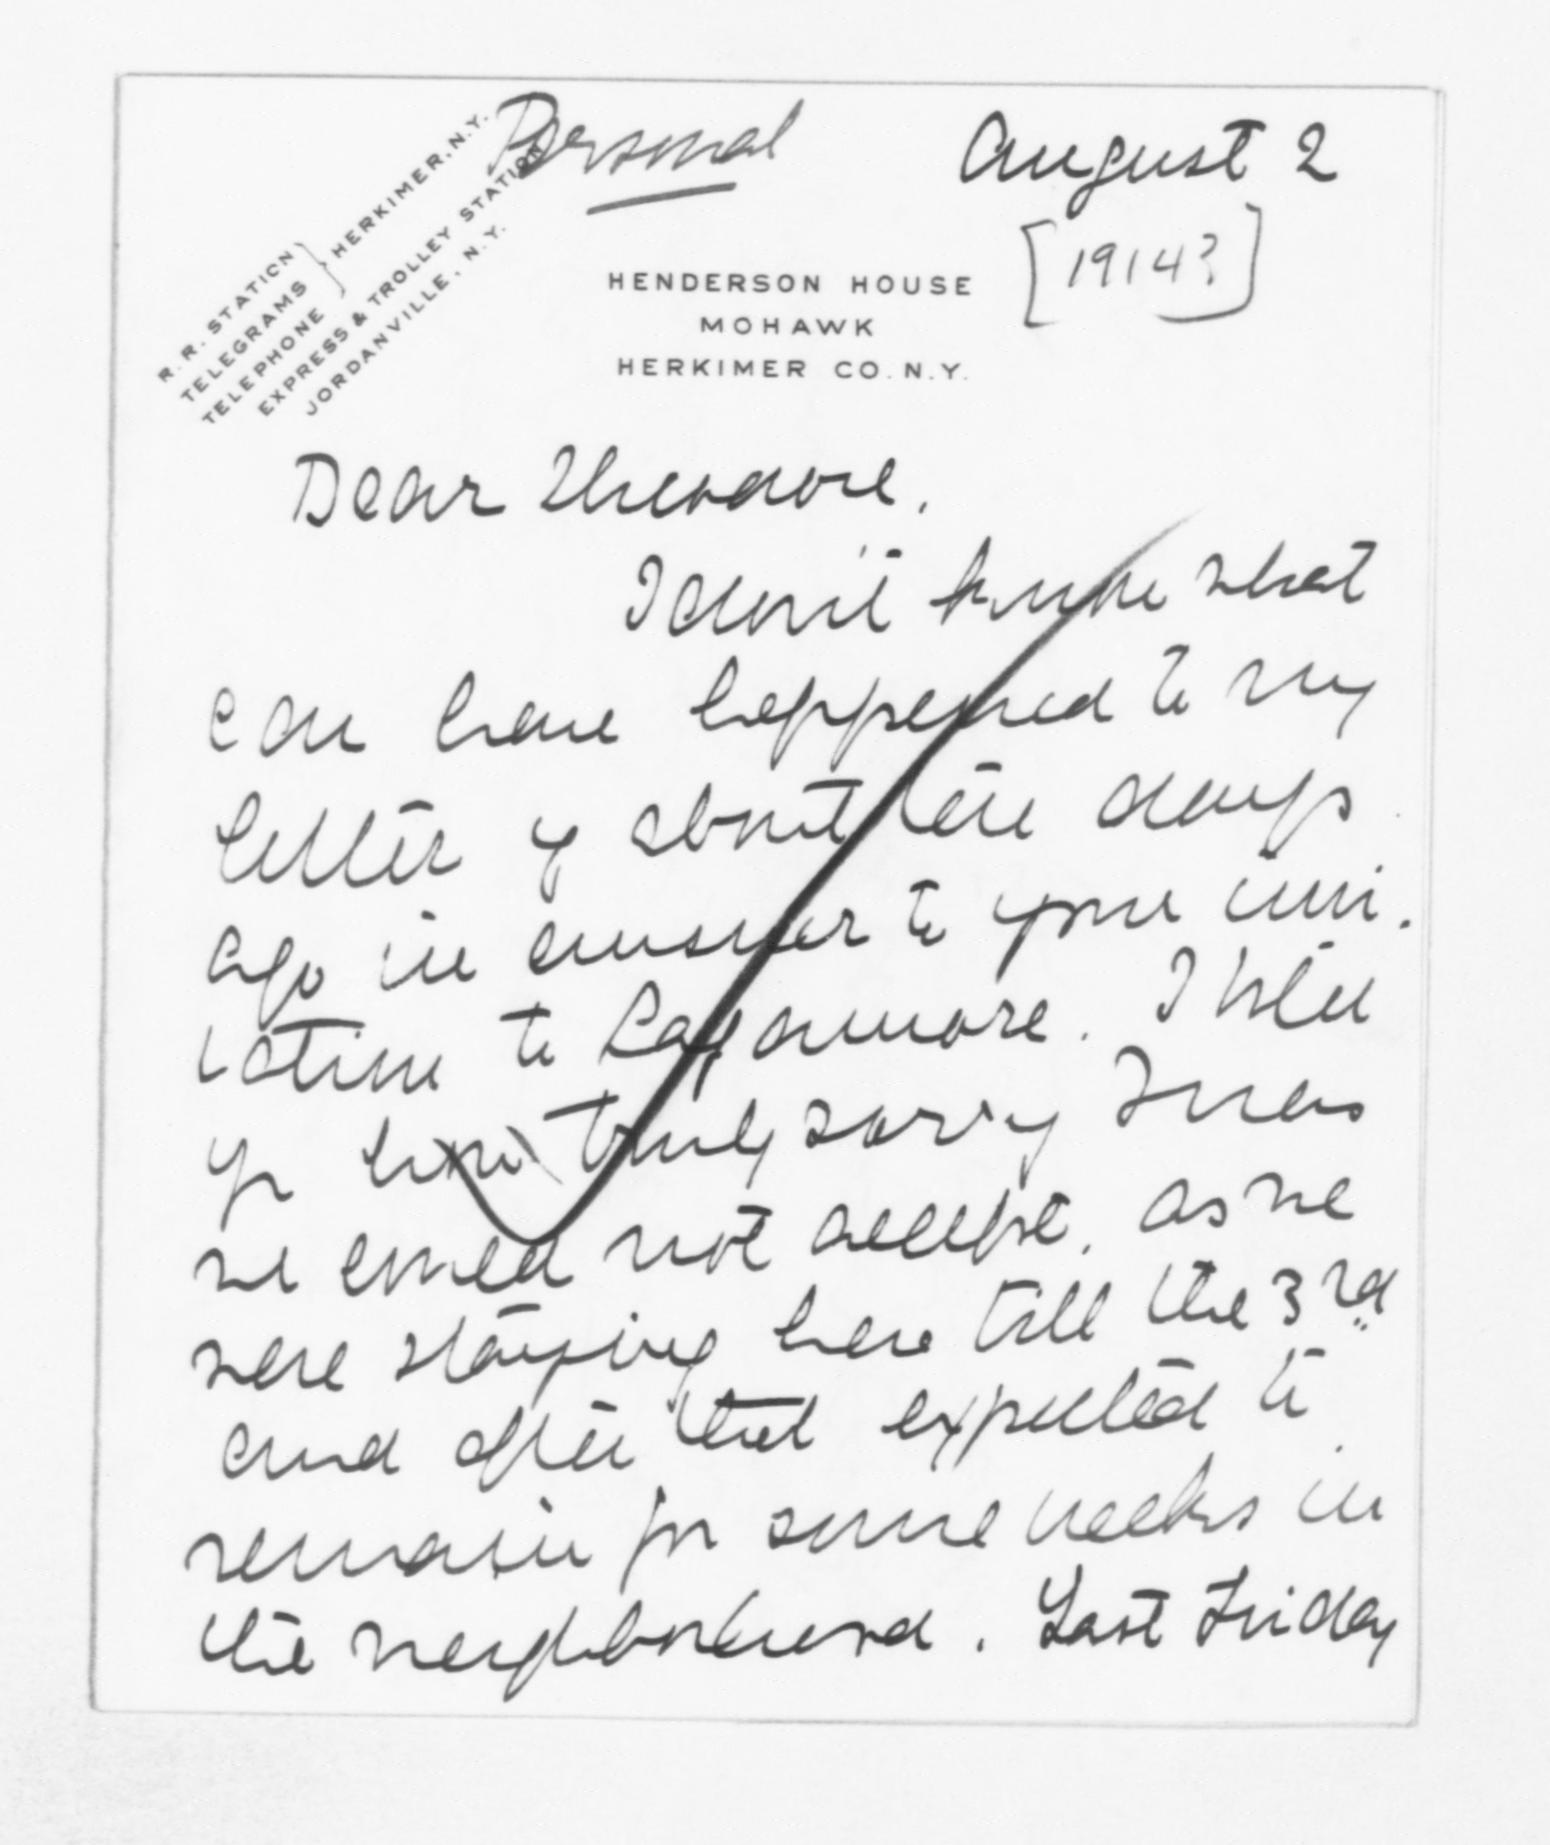 Personal
August 2
[1914?]
R. R. STATION
TELEGRAMS
TELEPHONE
HERKIMER, N.Y.
EXPRESS & TROLLEY STATION
JORDANVILLE, N.Y.
HENDERSON HOUSE
MOHAWK
HERKIMER CO. N.Y.
Dear Theodore,
I don't know what
can have happened to my
letter of about ten days
ago in answer to your invi-
tation to Sagamore. I told
yr how truly sorry I was
we could not accept, as we
were staying here till the 3rd
and after that expected to
remain for some weeks in
the neighborhood. Last Friday